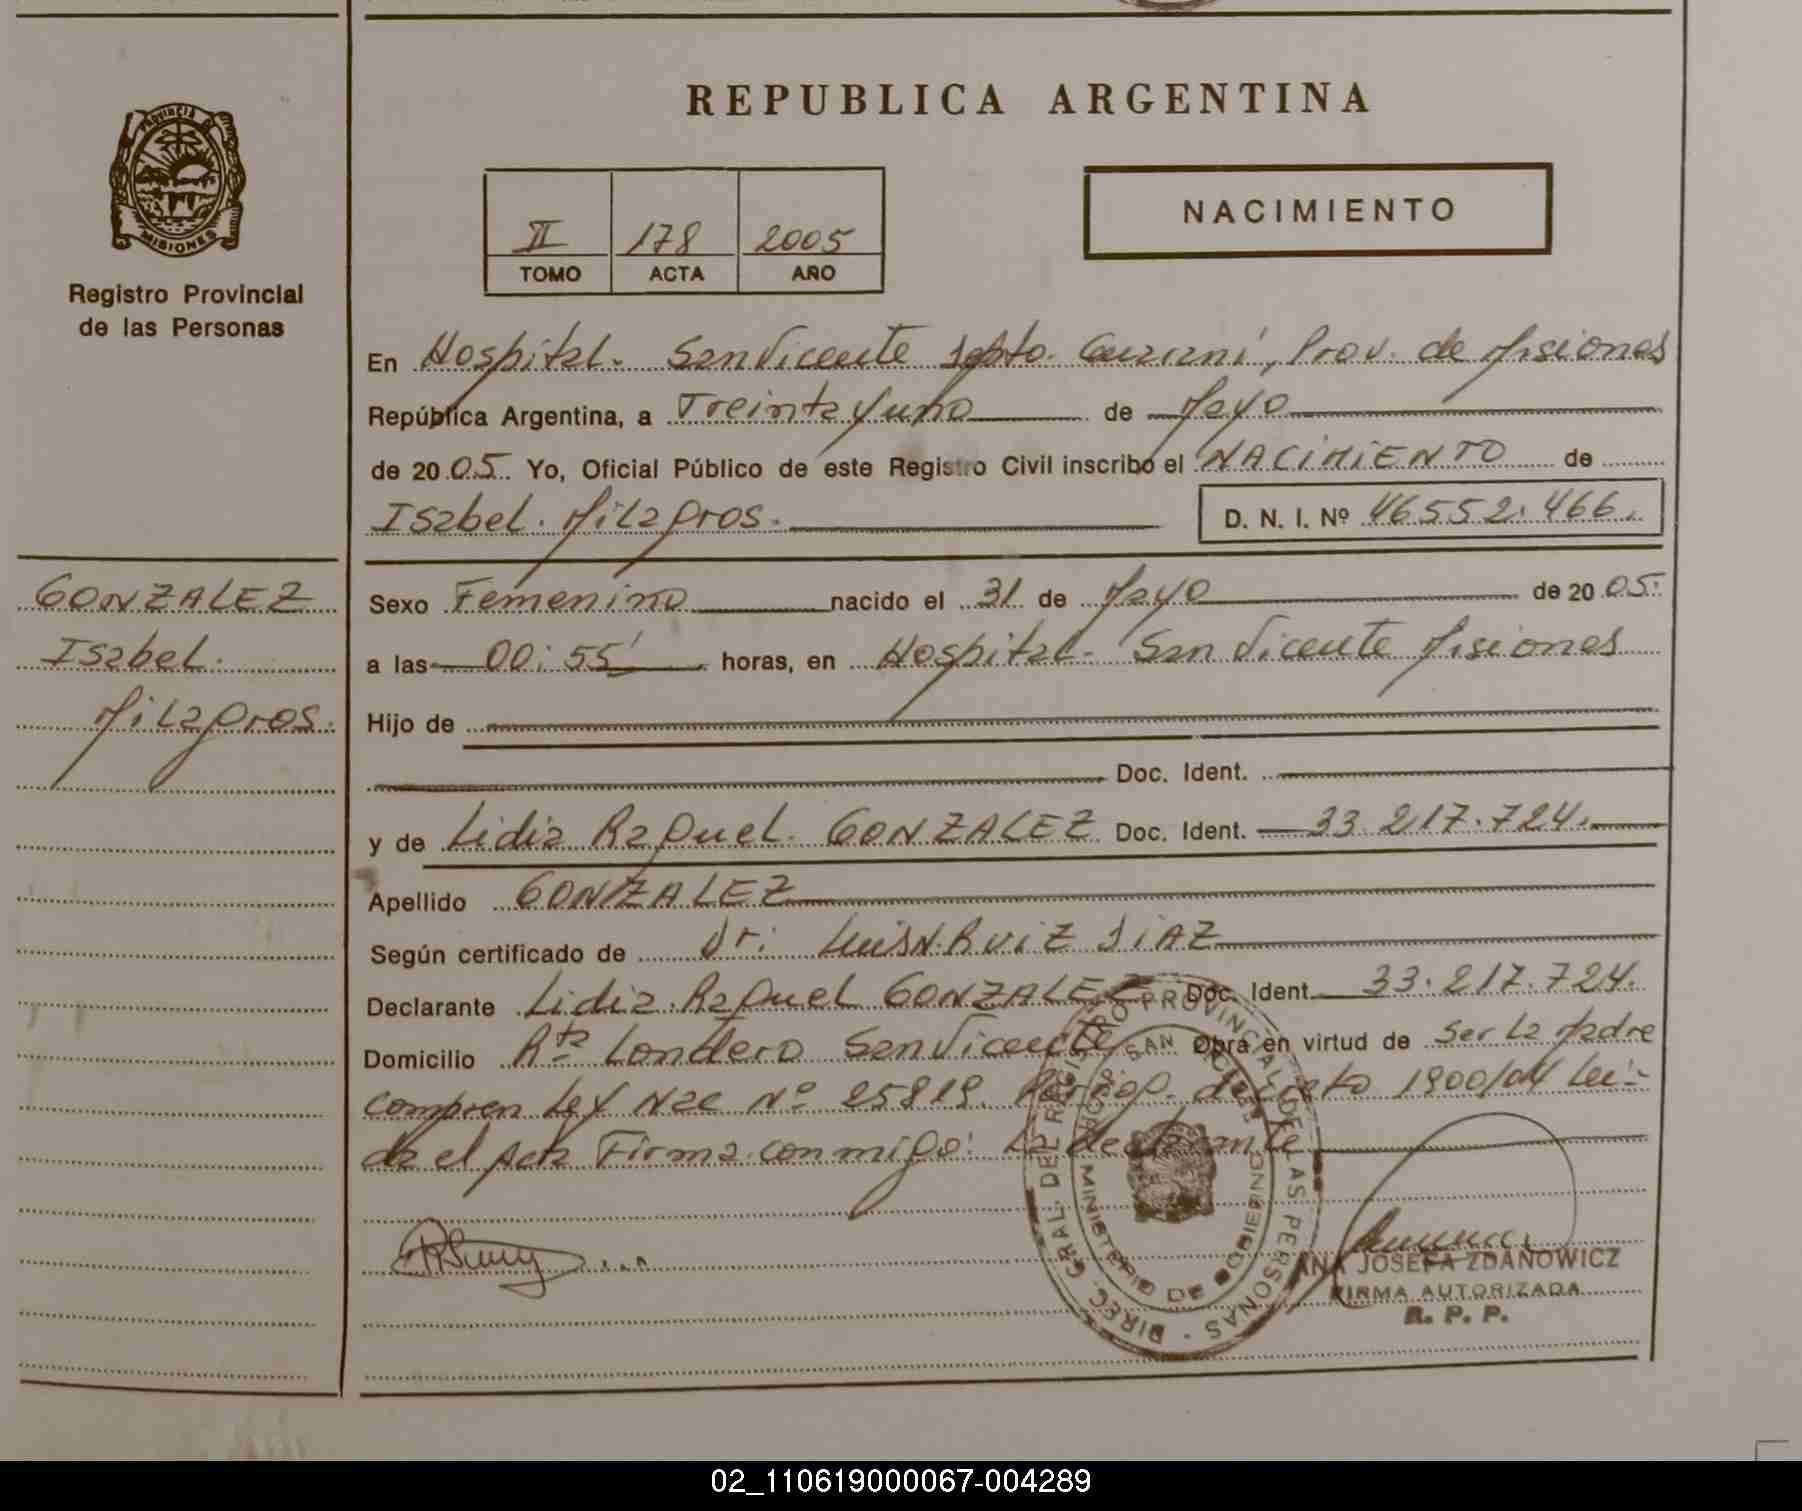 REPUBLICA ARGENTINA
PROVINCIA
MISIONES
Registro Provincial
de las Personas
II 178 2005
TOMO ACTA AÑO
NACIMIENTO
En Hospital. San Vicente Dpto. Guaraní, Prov. de Misiones
República Argentina, a Treinta y uno de Mayo
de 2005. Yo, Oficial Público de este Registro Civil inscribo el NACIMIENTO de
Isabel. Milagros. D. N. I. Nº 46.552.466.
GONZALEZ
Isabel.
Milagros.
Sexo Femenino nacido el 31 de Mayo de 2005.
a las 00:55' horas, en Hospital. San Vicente Misiones
Hijo de
Doc. Ident.
y de Lidia Raquel. GONZALEZ Doc. Ident. 33.217.724.
Apellido GONZALEZ
Según certificado de Dr. Luis N. RUIZ DIAZ
Declarante Lidia. Raquel GONZALEZ Doc. Ident. 33.217.724.
Domicilio Rta Londero San Vicente Obra en virtud de Ser La Madre
Ley Nac Nº 25819. decreto 1900/04 Lei-
da el Acta Firma conmigo: La declarante
DIREC. GRAL. DE REGISTRO PROVINCIAL DE LAS PERSONAS
MINISTERIO DE GOBIERNO
SAN VICENTE
ANA JOSEFA ZDANOWICZ
FIRMA AUTORIZADA
R. P. P.
02_110619000067-004289